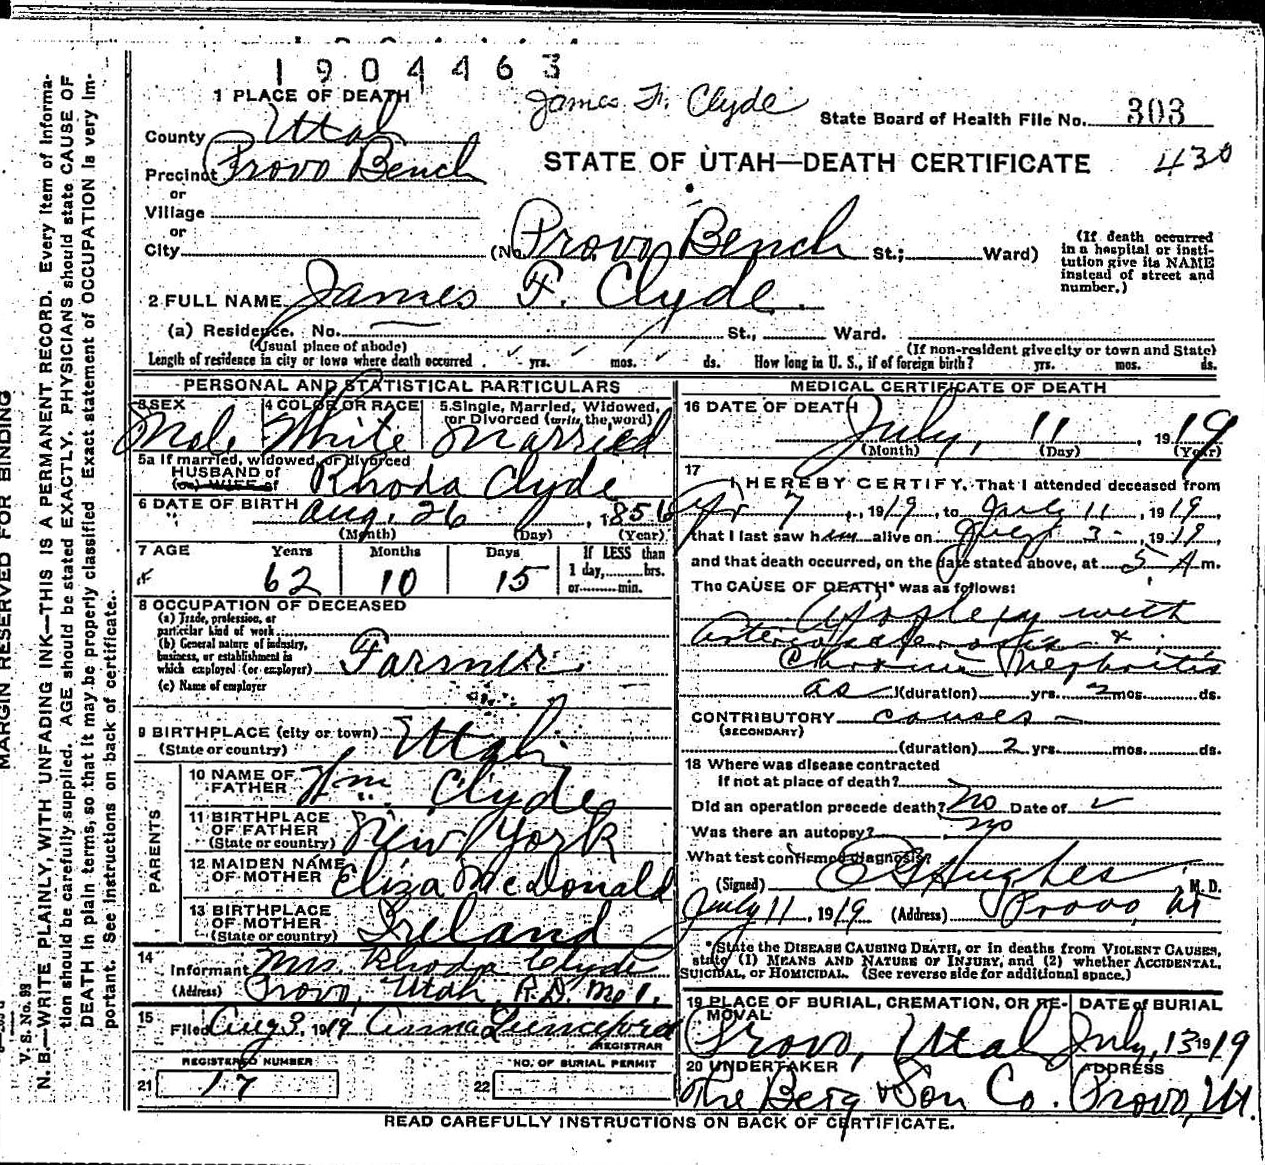 1904463
1 PLACE OF DEATH
James F. Clyde
State Board of Health File No. 303
County Utah
STATE OF UTAH—DEATH CERTIFICATE 430
Precinct Provo Bench
or
Village
or
City (No. Provo Bench St.; Ward)
(If death occurred
in a hospital or insti-
tution give its NAME
instead of street and
number.)
2 FULL NAME James F. Clyde.
(a) Residence. No. St., Ward.
(Usual place of abode) (If non-resident give city or town and State)
Length of residence in city or town where death occurred yrs. mos. ds. How long in U. S., if of foreign birth? yrs. mos. ds.
PERSONAL AND STATISTICAL PARTICULARS
3 SEX 4 COLOR OR RACE 5. Single, Married, Widowed,
or Divorced (write the word)
Male White Married
5a If married, widowed, or divorced
HUSBAND of
(or) WIFE of Rhoda Clyde
6 DATE OF BIRTH Aug. 26, 1856
(Month) (Day) (Year)
7 AGE Years Months Days If LESS than
1 day, hrs.
or min.
62 10 15
8 OCCUPATION OF DECEASED
(a) Trade, profession, or
particular kind of work
(b) General nature of industry,
business, or establishment in
which employed (or employer) Farmer.
(c) Name of employer
9 BIRTHPLACE (city or town) Utah
(State or country)
PARENTS
10 NAME OF
FATHER Wm Clyde
11 BIRTHPLACE
OF FATHER
(State or country) New York
12 MAIDEN NAME
OF MOTHER Eliza McDonald
13 BIRTHPLACE
OF MOTHER
(State or country) Ireland
14
Informant Mrs. Rhoda Clyde
(Address) Provo, Utah, R.D. No 1.
15
Filed Aug 3, 1919 Anna
REGISTRAR
REGISTERED NUMBER NO. OF BURIAL PERMIT
21 17 22
MEDICAL CERTIFICATE OF DEATH
16 DATE OF DEATH
July, 11, 1919
(Month) (Day) (Year)
17
I HEREBY CERTIFY, That I attended deceased from
Apr 7, 1919, to July 11, 1919,
that I last saw him alive on July 3-, 1919,
and that death occurred, on the date stated above, at 5 A m.
The CAUSE OF DEATH* was as follows:
Apoplexy with
Arteriosclerosis &
Chronic Nephritis
as (duration) yrs. 2 mos. ds.
CONTRIBUTORY causes -
(SECONDARY)
(duration) 2 yrs. mos. ds.
18 Where was disease contracted
if not at place of death?
Did an operation precede death? No Date of
Was there an autopsy? No
What test confirmed diagnosis?
(Signed) Hughes, M. D.
July 11, 1919 (Address) Provo, Ut
*State the DISEASE CAUSING DEATH, or in deaths from VIOLENT CAUSES,
state (1) MEANS AND NATURE OF INJURY, and (2) whether ACCIDENTAL,
SUICIDAL, or HOMICIDAL. (See reverse side for additional space.)
19 PLACE OF BURIAL, CREMATION, OR RE-
MOVAL DATE of BURIAL
Provo, Utah July, 13 1919
20 UNDERTAKER ADDRESS
The Berg & Son Co. Provo, Ut.
READ CAREFULLY INSTRUCTIONS ON BACK OF CERTIFICATE.
MARGIN RESERVED FOR BINDING
V. S. No. 93
N. B.—WRITE PLAINLY, WITH UNFADING INK—THIS IS A PERMANENT RECORD. Every item of informa-
tion should be carefully supplied. AGE should be stated EXACTLY. PHYSICIANS should state CAUSE OF
DEATH in plain terms, so that it may be properly classified. Exact statement of OCCUPATION is very im-
portant. See instructions on back of certificate.